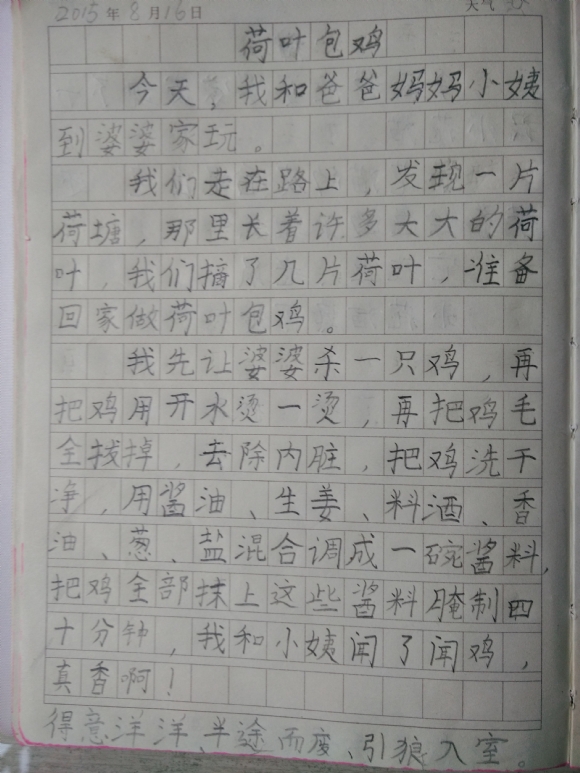 2015年8月16日 天气
荷叶包鸡
今天，我和爸爸妈妈小姨
到婆婆家玩。
我们走在路上，发现一片
荷塘，那里长着许多大大的荷
叶，我们摘了几片荷叶，准备
回家做荷叶包鸡。
我先让婆婆杀一只鸡，再
把鸡用开水烫一烫，再把鸡毛
全拔掉，去除内脏，把鸡洗干
净，用酱油、生姜、料酒、香
油、葱、盐混合调成一碗酱料，
把鸡全部抹上这些酱料腌制四
十分钟，我和小姨闻了闻鸡，
真香啊！
得意洋洋、半途而废、引狼入室。